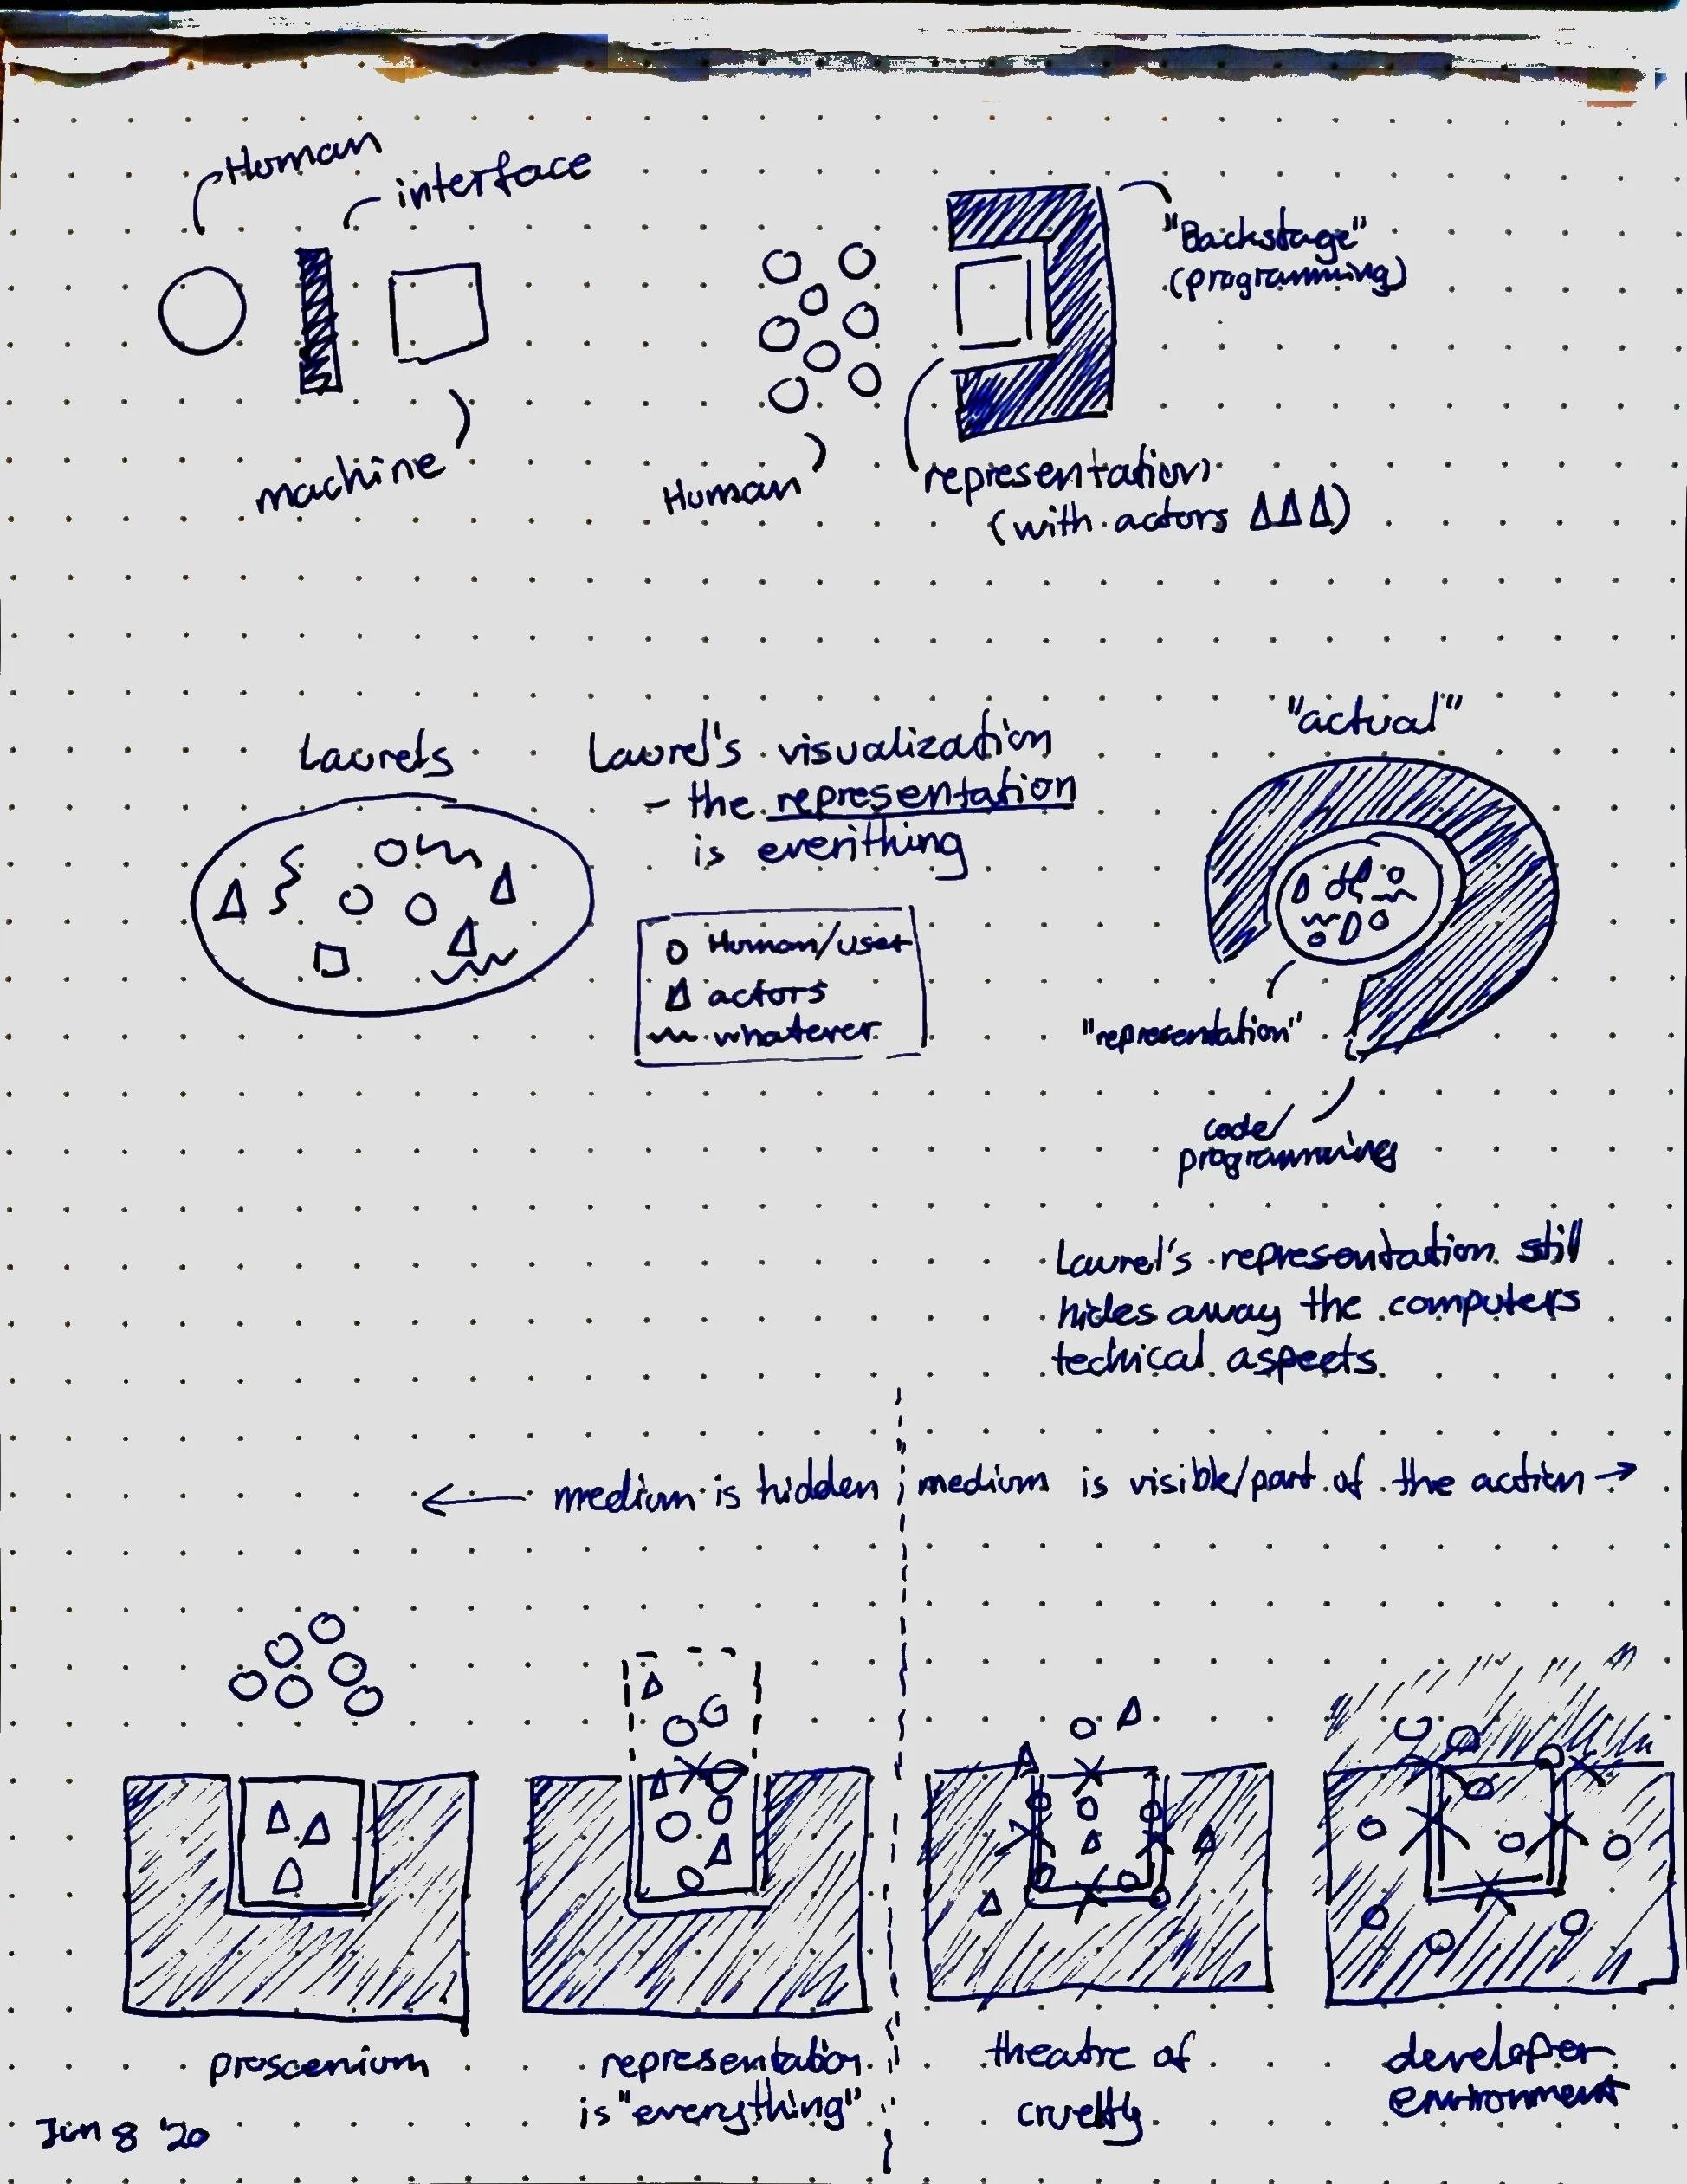 Human
interface
machine
"Backstage"
(programming)
Human
representation
(with actors ΔΔΔ)
Laurels
Laurel's visualization
- the representation
is everithing
Human/user
actors
whatever
"actual"
"representation"
code/
programming
Laurel's representation still
hides away the computers
techical aspects.
← medium is hidden
medium is visible/part of the action →
proscenium
representation
is "everything"
theatre of
cruelty
developer
environment
Jun 8 '20